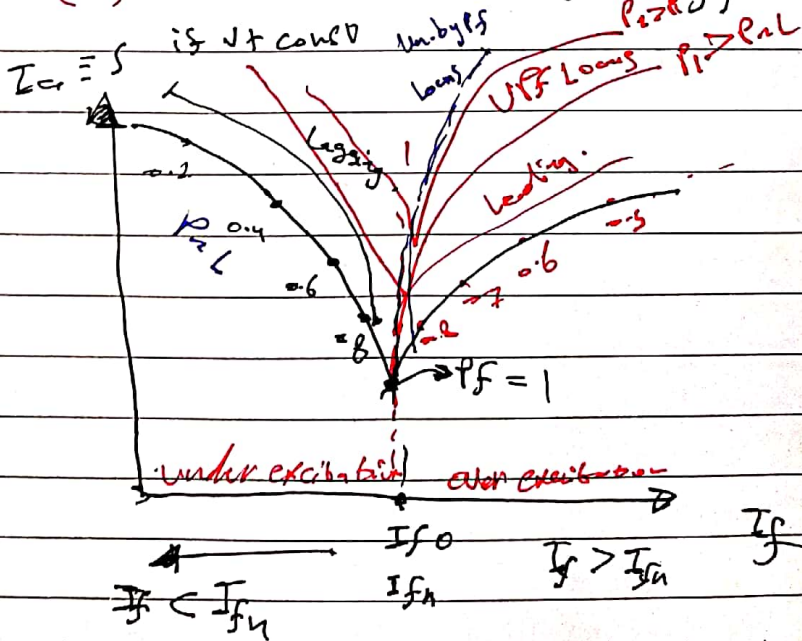 Ia ≡ S if Vt const
Un.by Pf
Locus
UPF Locus
P1 > PnL
Lagging
Leading.
0.2
0.4
0.6
0.8
0.5
0.6
0.7
0.8
Pf = 1
under excitation
over excitation
If
If0
Ifn
If < Ifn
If > Ifn